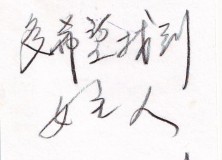 多希望找到
女主人